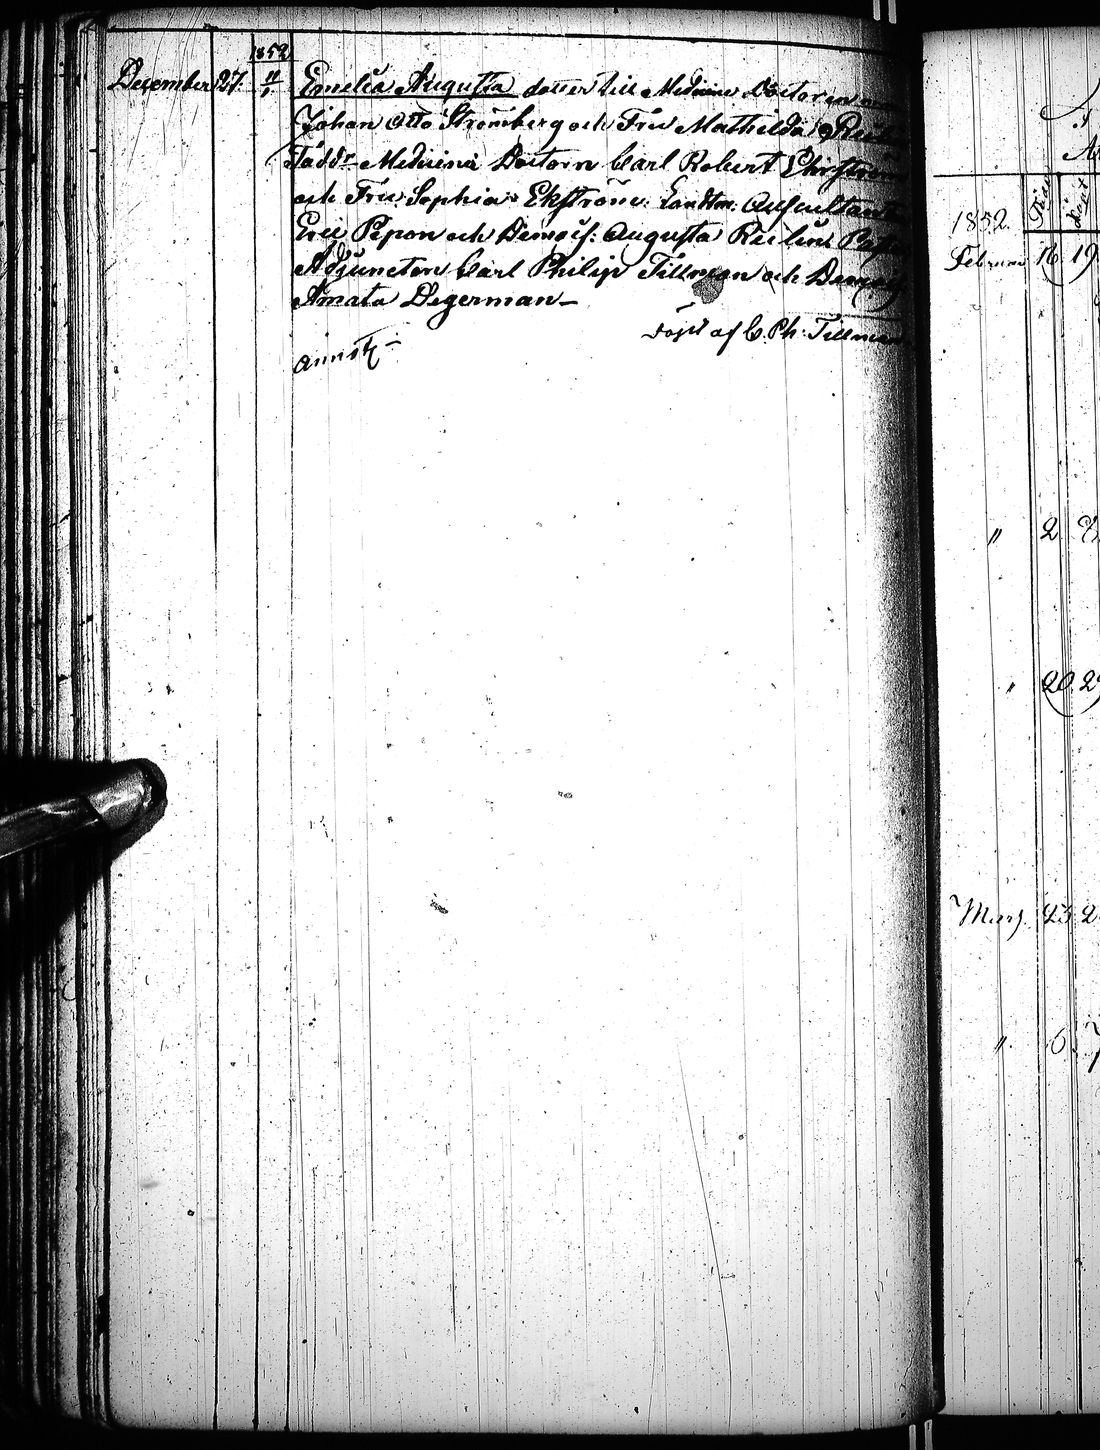 1852
December 27. 11/1 Emelia Augusta dotter till Medicine Doctorn
Johan Otto Strömberg och Fru Mathilda
Faddr Medicinæ Doctorn Carl Robert Ehrström
och Fru Sophia Ekström. Landtm. Auscultanten
Eric Pepon och Demois: Augusta
Adjuncten Carl Philip Tillman och
Amata Degerman—
Döpt af C. Ph. Tillman
1852.
Februari 16 19
" 2
" 20 2
Mars 23 2
" 6